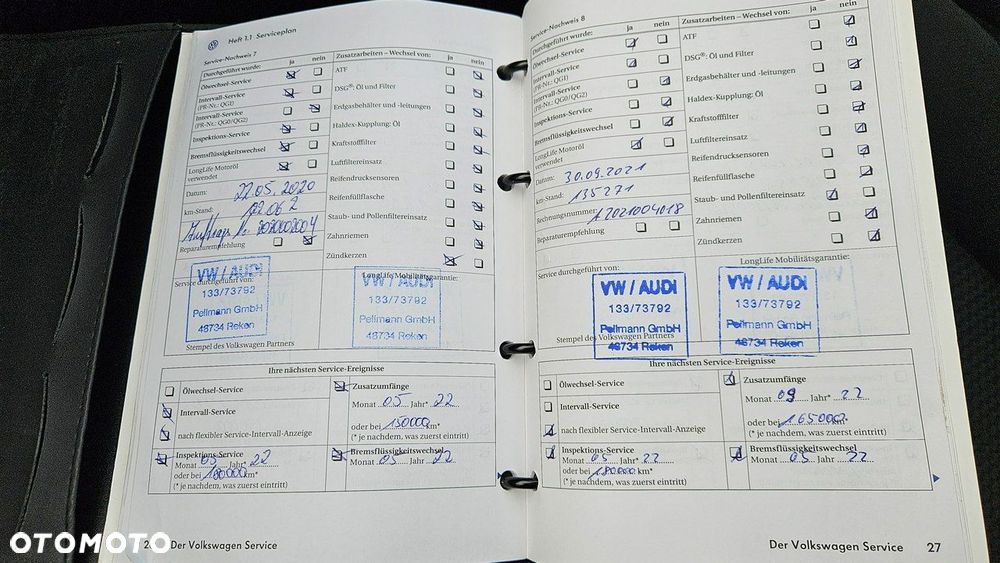 Heft 1.1 Serviceplan
Service-Nachweis 7
Durchgeführt wurde: ja nein
Ölwechsel-Service
Intervall-Service
(PR-Nr.: QG1)
Intervall-Service
(PR-Nr.: QG0/QG2)
Inspektions-Service
Bremsflüssigkeitswechsel
LongLife Motoröl
verwendet
Datum: 22.05.2020
km-Stand:
Reparaturempfehlung
Zusatzarbeiten – Wechsel von: ja nein
ATF
DSG®: Öl und Filter
Erdgasbehälter und -leitungen
Haldex-Kupplung: Öl
Kraftstofffilter
Luftfiltereinsatz
Reifendrucksensoren
Reifenfüllflasche
Staub- und Pollenfiltereinsatz
Zahnriemen
Zündkerzen
Service durchgeführt von:
VW / AUDI
133/73792
Pellmann GmbH
48734 Reken
Stempel des Volkswagen Partners
LongLife Mobilitätsgarantie:
VW / AUDI
133/73792
Pellmann GmbH
48734 Reken
Ihre nächsten Service-Ereignisse
Ölwechsel-Service
Intervall-Service
nach flexibler Service-Intervall-Anzeige
Inspektions-Service
Monat 05 Jahr* 22
oder bei 180000 km*
(* je nachdem, was zuerst eintritt)
Zusatzumfänge
Monat 05 Jahr* 22
oder bei 150000 km*
(* je nachdem, was zuerst eintritt)
Bremsflüssigkeitswechsel
Monat 05 Jahr 22
Der Volkswagen Service
Service-Nachweis 8
Durchgeführt wurde: ja nein
Ölwechsel-Service
Intervall-Service
(PR-Nr.: QG1)
Intervall-Service
(PR-Nr.: QG0/QG2)
Inspektions-Service
Bremsflüssigkeitswechsel
LongLife Motoröl
verwendet
Datum: 30.09.2021
km-Stand: 135271
Rechnungsnummer: A2021004018
Reparaturempfehlung
Zusatzarbeiten – Wechsel von: ja nein
ATF
DSG®: Öl und Filter
Erdgasbehälter und -leitungen
Haldex-Kupplung: Öl
Kraftstofffilter
Luftfiltereinsatz
Reifendrucksensoren
Reifenfüllflasche
Staub- und Pollenfiltereinsatz
Zahnriemen
Zündkerzen
Service durchgeführt von:
VW / AUDI
133/73792
Pellmann GmbH
48734 Reken
Stempel des Volkswagen Partners
LongLife Mobilitätsgarantie:
VW / AUDI
133/73792
Pellmann GmbH
48734 Reken
Ihre nächsten Service-Ereignisse
Ölwechsel-Service
Intervall-Service
nach flexibler Service-Intervall-Anzeige
Inspektions-Service
Monat 05 Jahr* 22
oder bei 180000 km*
(* je nachdem, was zuerst eintritt)
Zusatzumfänge
Monat 09 Jahr* 22
oder bei 165000 km*
(* je nachdem, was zuerst eintritt)
Bremsflüssigkeitswechsel
Monat 05 Jahr 22
Der Volkswagen Service 27
OTOMOTO